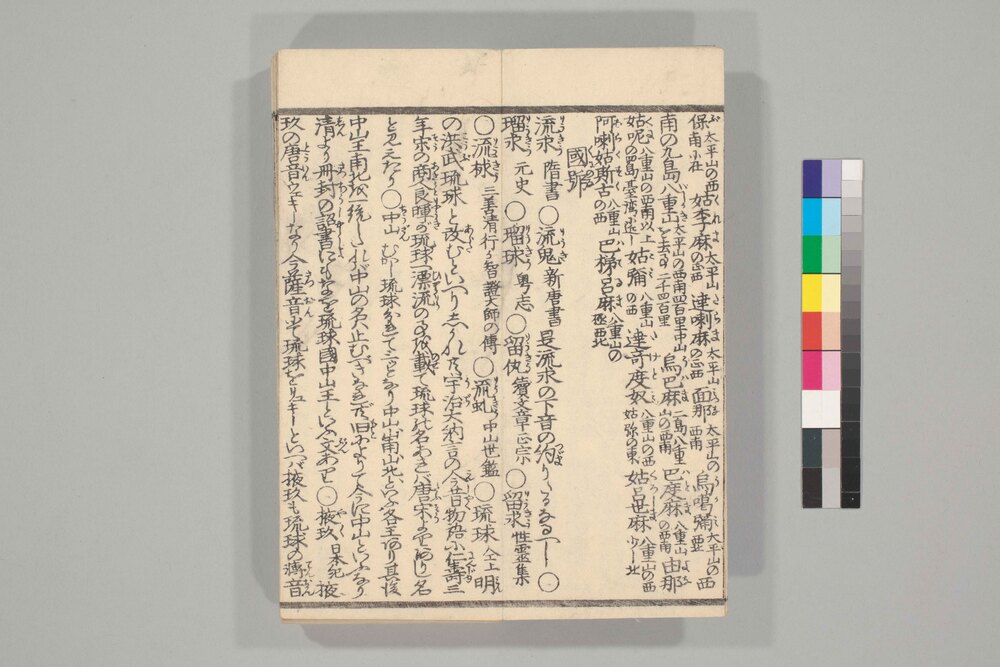 保 太平山の西南小在 姑李麻 太平山の正西 達喇麻 太平山の正西 面那 太平山の西南 烏鳴彌 太平山の西
南の九島八重山を去る二千四百里 烏巴麻 二島八重山の西南 巴度麻 八重山の西南 由那
姑呢 八重山の西南以上四島臺灣に近し 姑彌 八重山の西 達奇度奴 八重山の西姑弥の東 姑呂世麻 八重山の西少し北
阿喇姑斯古 八重山の西 巴梯呂麻 八重山の極西北
國號
流求 隋書 ○流鬼 新唐書 是流求の下音の約りたるなるべし ○
瑠求 元史 ○瑠球 粤志 ○留仇 續文章正宗 ○留求 性靈集
○流梂 三善清行の智證大師の傳 ○流虬 中山世鑑 ○琉球 仝上 明
の洪武琉球と改むといへりしかれども宇治大納言の今昔物語に仁壽三
年宋の商人良暉が琉球に漂流の事を載て琉球の名あされば唐宋よりありし名
と見えたり ○中山 むかし琉球分れて三ツとなり中山山南山北といふ各王あり其後
中山王南北を一統したれば中山の名は止むべきなれども旧によりて今に中山といふなり
清より冊封の詔書にもなを琉球國中山王といふ文あり ○掖玖 日本紀 掖
玖の唐音ウェキーなり今薩音にて琉球をリュキーといへば掖玖も琉球の轉音